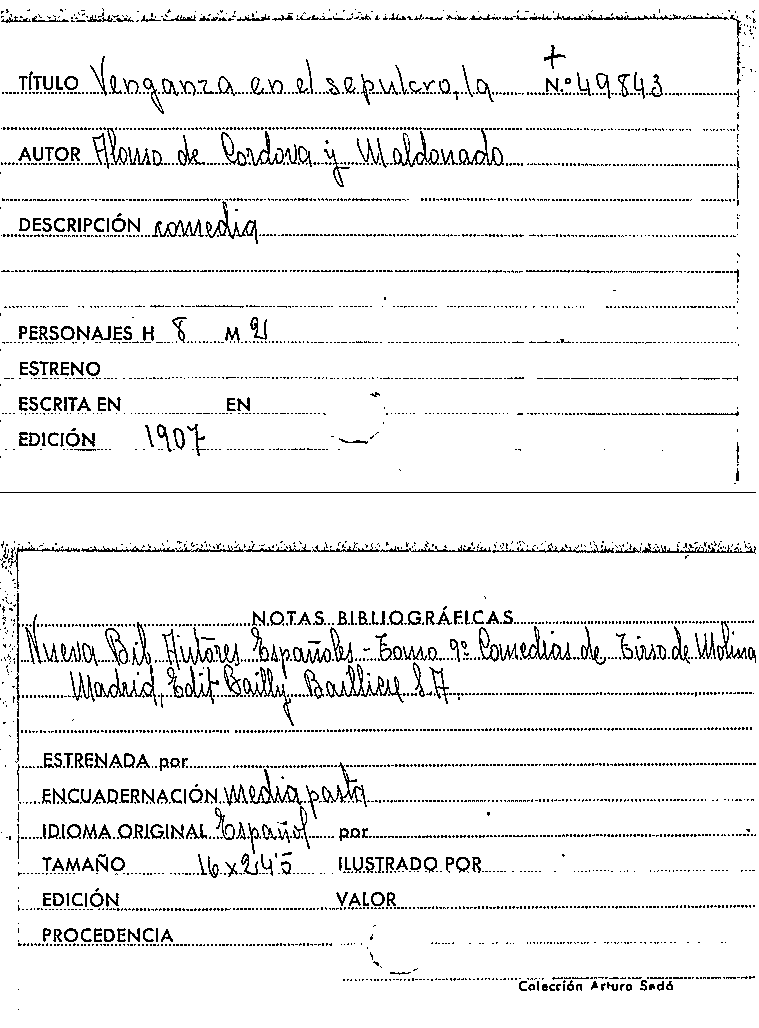 +
TÍTULO Venganza en el sepulcro, la N.º 49843
AUTOR Alonso de Cordova y Maldonado
DESCRIPCIÓN comedia
PERSONAJES H 8 M 2
ESTRENO
ESCRITA EN EN
EDICIÓN 1907
NOTAS BIBLIOGRÁFICAS
Nueva Bib. Autores Españoles - Tomo 9º Comedias de Tirso de Molina
Madrid, Edit Bailly Bailliere S.A.
ESTRENADA por
ENCUADERNACIÓN media pasta
IDIOMA ORIGINAL Español por
TAMAÑO 16 x 24'5 ILUSTRADO POR
EDICIÓN VALOR
PROCEDENCIA
Colección Arturo Sedó